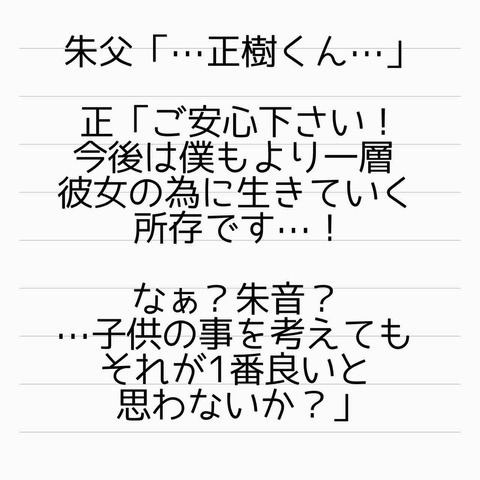 朱父「…正樹くん…」
正「ご安心下さい！
今後は僕もより一層
彼女の為に生きていく
所存です…！
なぁ？朱音？
…子供の事を考えても
それが1番良いと
思わないか？」